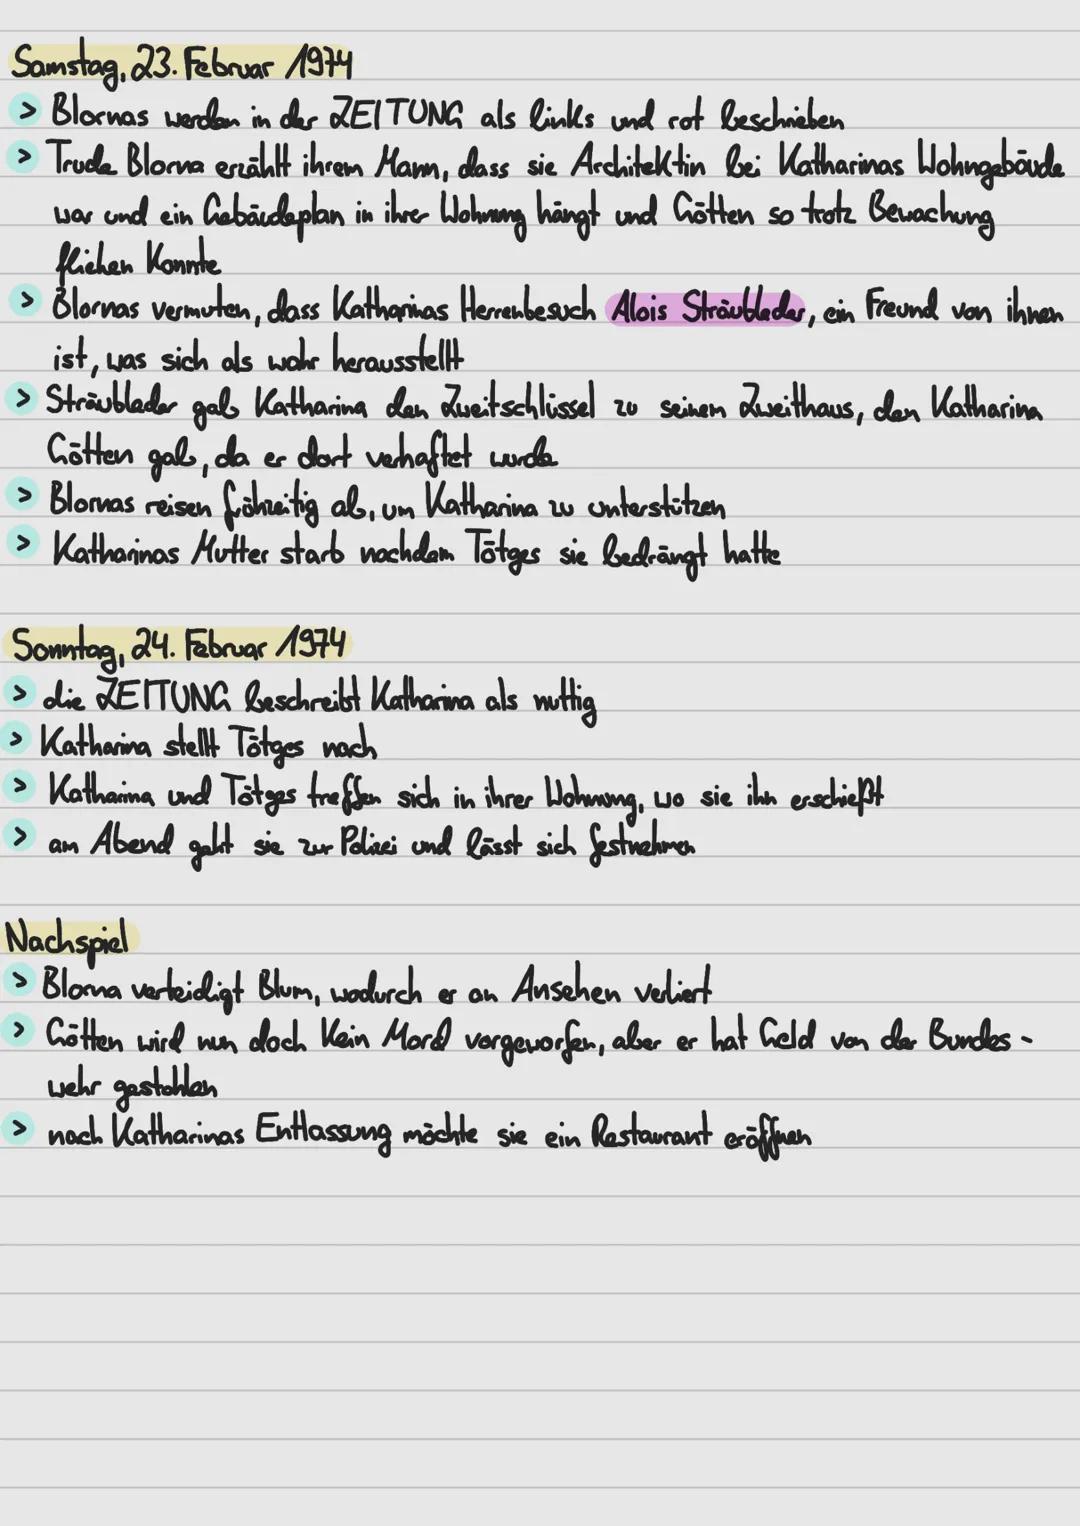 Samstag, 23. Februar 1974
> Blornas werden in der ZEITUNG als links und rot beschrieben
> Trude Blorna erzählt ihrem Mann, dass sie Architektin bei Katharinas Wohngebäude
war und ein Gebäudeplan in ihrer Wohnung hängt und Götten so trotz Bewachung
fliehen konnte
> Blornas vermuten, dass Katharinas Herrenbesuch Alois Sträubleder, ein Freund von ihnen
ist, was sich als wahr herausstellt
> Sträubleder gab Katharina den Zweitschlüssel zu seinem Zweithaus, den Katharina
Götten gab, da er dort verhaftet wurde
> Blornas reisen frühzeitig ab, um Katharina zu unterstützen
> Katharinas Mutter starb nachdem Tötges sie bedrängt hatte
Sonntag, 24. Februar 1974
> die ZEITUNG beschreibt Katharina als nuttig
> Katharina stellt Tötges nach
> Katharina und Tötges treffen sich in ihrer Wohnung, wo sie ihn erschießt
> am Abend geht sie zur Polizei und lässt sich festnehmen
Nachspiel
> Blorna verteidigt Blum, wodurch er an Ansehen verliert
> Götten wird nun doch kein Mord vorgeworfen, aber er hat Geld von der Bundes-
wehr gestohlen
> nach Katharinas Entlassung möchte sie ein Restaurant eröffnen